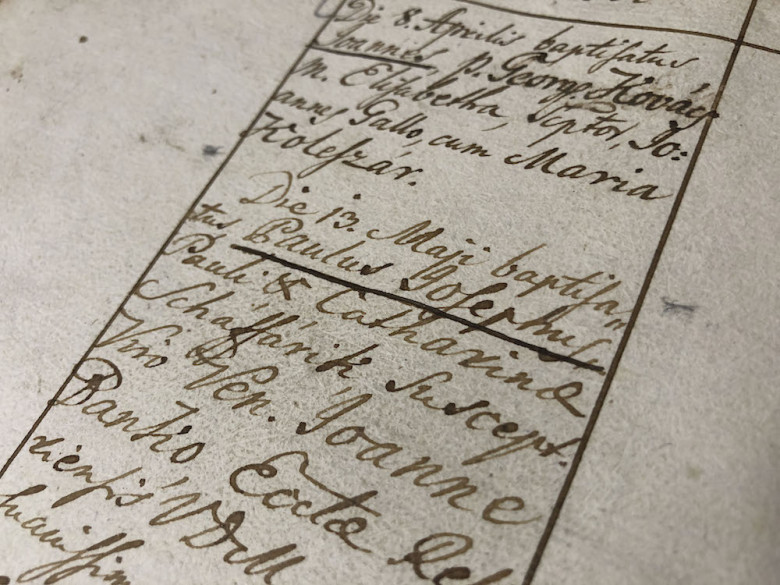 Die 8. Aprilis baptisatus
Joannes. p. Georg. Kovács
m. Elisabetha, Sşptor, Jo:
annes Gallo, cum Maria
Koleszár.
Die 13. Maji baptisa-
tus Paulus Josephus
Pauli & Catharinæ
Schaffárik suscept.
Viro Ven. Joanne
Pankio Eccłæ Rel
ziensis VDM